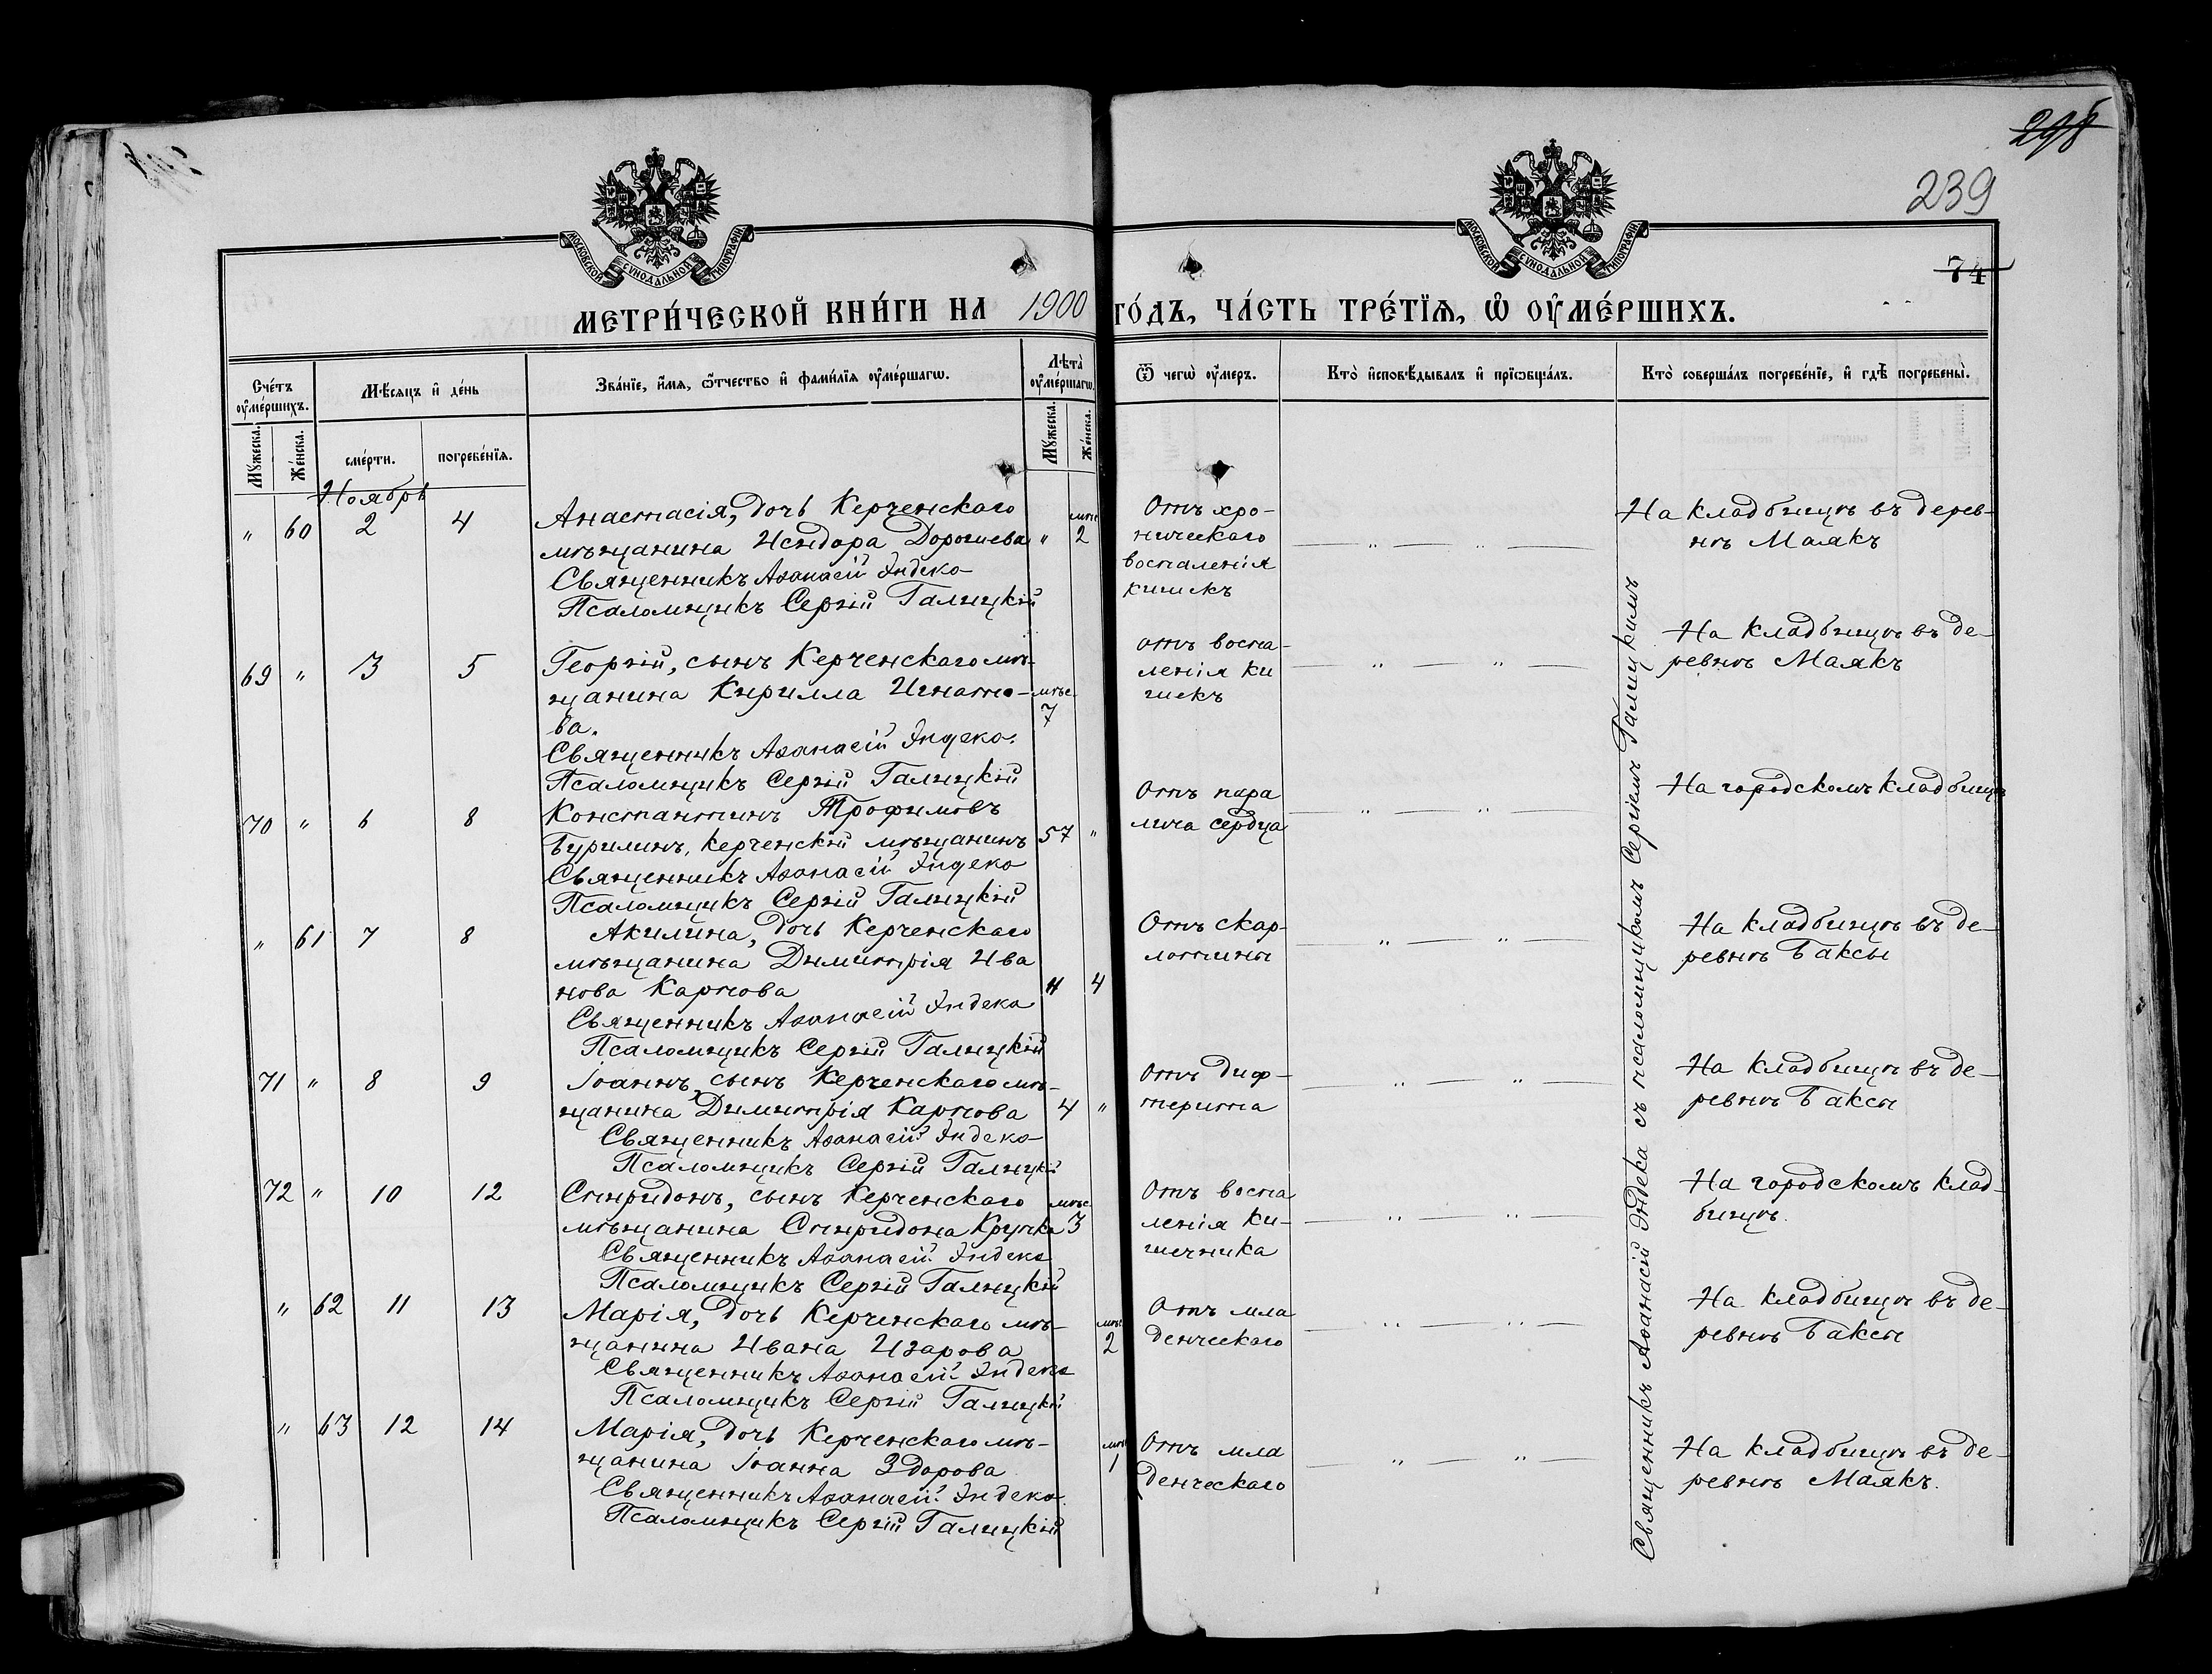 298
239
74
МОСКОВСКОЙ СУНОДАЛЬНОЙ ТИПОГРАФІИ
МОСКОВСКОЙ СУНОДАЛЬНОЙ ТИПОГРАФІИ
МЕТРИ́ЧЕСКОЙ КНИ́ГИ НА 1900 ГО́ДЪ, ЧА́СТЬ ТРЕ́ТЇѦ, Ѡ҆ ОУ҆МЕ́РШИХЪ.
Сче́тъ оу҆ме́ршихъ.
Мꙋжеска.
Же́нска.
Мѣ́сѧцъ и҆ де́нь
сме́рти.
погребе́нїѧ.
Зва́нїе, и҆́мѧ, ѻ҆́тчество и҆ фами́лїѧ оу҆ме́ршагѡ.
Лѣ́та оу҆ме́ршагѡ.
Мꙋжеска.
Же́нска.
Ѿ чегѡ̀ оу҆́меръ.
Кто̀ и҆сповѣ́дывалъ и҆ прїѡбща́лъ.
Кто̀ соверша́лъ погребе́нїе, и҆ гдѣ̀ погребены̀.
Ноябрь
" 60 2 4
Анастасія, дочь Керченскаго
мѣщанина Исидора Дорошева
" мѣс. 2
Священникъ Аѳанасій Индека
Псаломщикъ Сергій Галицкій
Отъ хро-
ническаго
воспаленія
кишекъ
На кладбищѣ въ дерев-
нѣ Маякъ
69 " 3 5
Георгій, сынъ Керченскаго мѣ-
щанина Кирилла Игнато-
ва.
мѣс. 7
Священникъ Аѳанасій Индека.
Псаломщикъ Сергій Галицкій
отъ воспа-
ленія ки
шекъ
На кладбищѣ въ де-
ревнѣ Маякъ
70 " 6 8
Константинъ Трофимовъ
Бурилинъ, керченскій мѣщанинъ
57 "
Священникъ Аѳанасій Индека
Псаломщикъ Сергій Галицкій
Отъ пара
лича сердца
На городскомъ кладбищѣ
" 61 7 8
Акилина, дочь Керченскаго
мѣщанина Димитрія Ива
нова Карпова
" 4
Священникъ Аѳанасій Индека
Псаломщикъ Сергій Галицкій
Отъ скар-
латины
На кладбищѣ въ де-
ревнѣ Баксы
71 " 8 9
Іоаннъ, сынъ Керченскаго мѣ-
щанина Димитрія Карпова
4 "
Священникъ Аѳанасій Индека
Псаломщикъ Сергій Галицкій
Отъ диф-
терита
На кладбищѣ въ де-
ревнѣ Баксы
72 " 10 12
Спиридонъ, сынъ Керченскаго
мѣщанина Спиридона Крупка
мѣс. 3
Священникъ Аѳанасій Индека
Псаломщикъ Сергій Галицкій
Отъ воспа
ленія ки-
шечника
На городскомъ клад-
бищѣ.
" 62 11 13
Марія, дочь Керченскаго мѣ-
щанина Ивана Изарова
мѣс. 2
Священникъ Аѳанасій Индека
Псаломщикъ Сергій Галицкій
Отъ мла
денческаго
На кладбищѣ въ де-
ревнѣ Баксы
" 63 12 14
Марія, дочь Керченскаго мѣ-
щанина Іоанна Здорова
мѣс. 1
Священникъ Аѳанасій Индека.
Псаломщикъ Сергій Галицкій
Отъ мла
денческаго
На кладбищѣ въ де-
ревнѣ Маякъ.
Священникъ Аѳанасій Индека съ псаломщикомъ Сергіемъ Галицкимъ